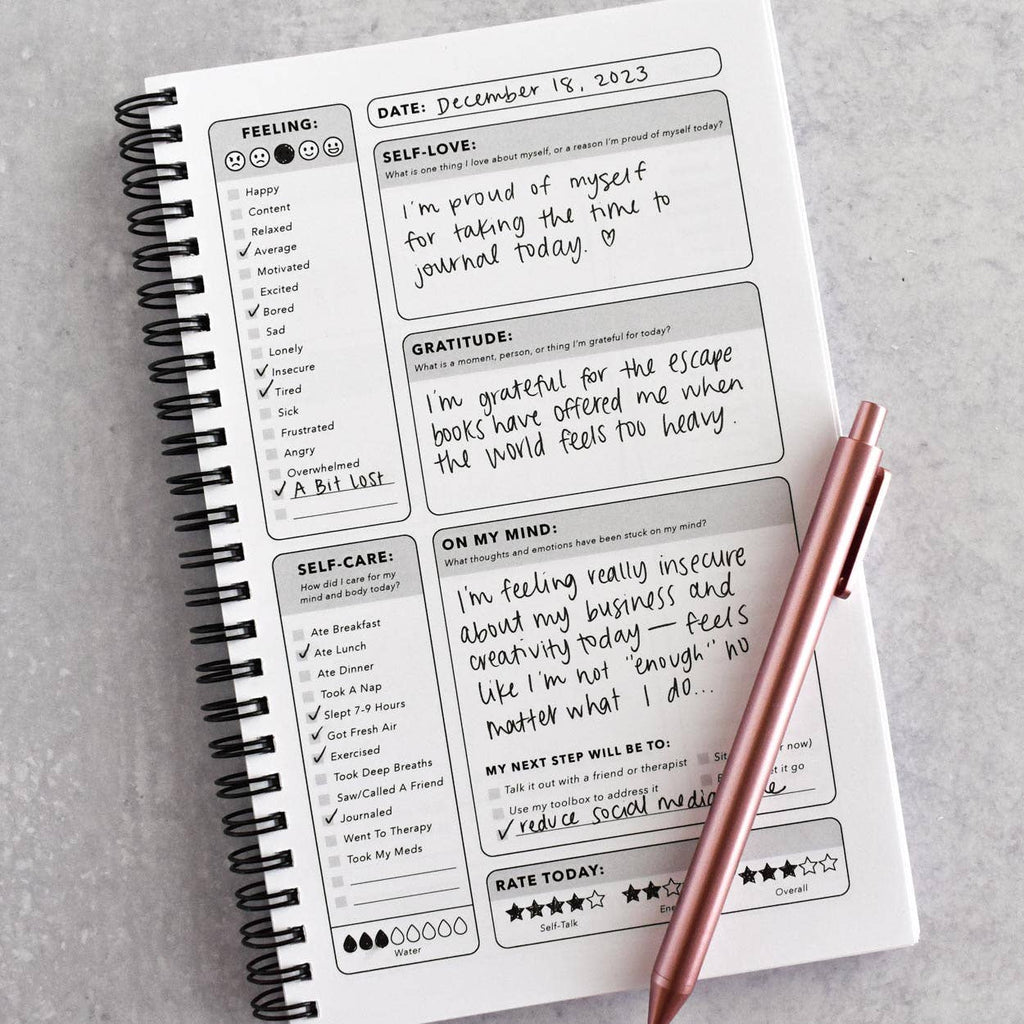 DATE: December 18, 2023
FEELING:
Happy
Content
Relaxed
Average
Motivated
Excited
Bored
Sad
Lonely
Insecure
Tired
Sick
Frustrated
Angry
Overwhelmed
A Bit Lost
SELF-LOVE:
What is one thing I love about myself, or a reason I'm proud of myself today?
I'm proud of myself
for taking the time to
journal today. ♡
GRATITUDE:
What is a moment, person, or thing I'm grateful for today?
I'm grateful for the escape
books have offered me when
the world feels too heavy.
SELF-CARE:
How did I care for my
mind and body today?
Ate Breakfast
Ate Lunch
Ate Dinner
Took A Nap
Slept 7-9 Hours
Got Fresh Air
Exercised
Took Deep Breaths
Saw/Called A Friend
Journaled
Went To Therapy
Took My Meds
Water
ON MY MIND:
What thoughts and emotions have been stuck on my mind?
I'm feeling really insecure
about my business and
creativity today — feels
like I'm not "enough" no
matter what I do...
MY NEXT STEP WILL BE TO:
Talk it out with a friend or therapist
now)
Use my toolbox to address it
it go
reduce social media
RATE TODAY:
Self-Talk
Overall